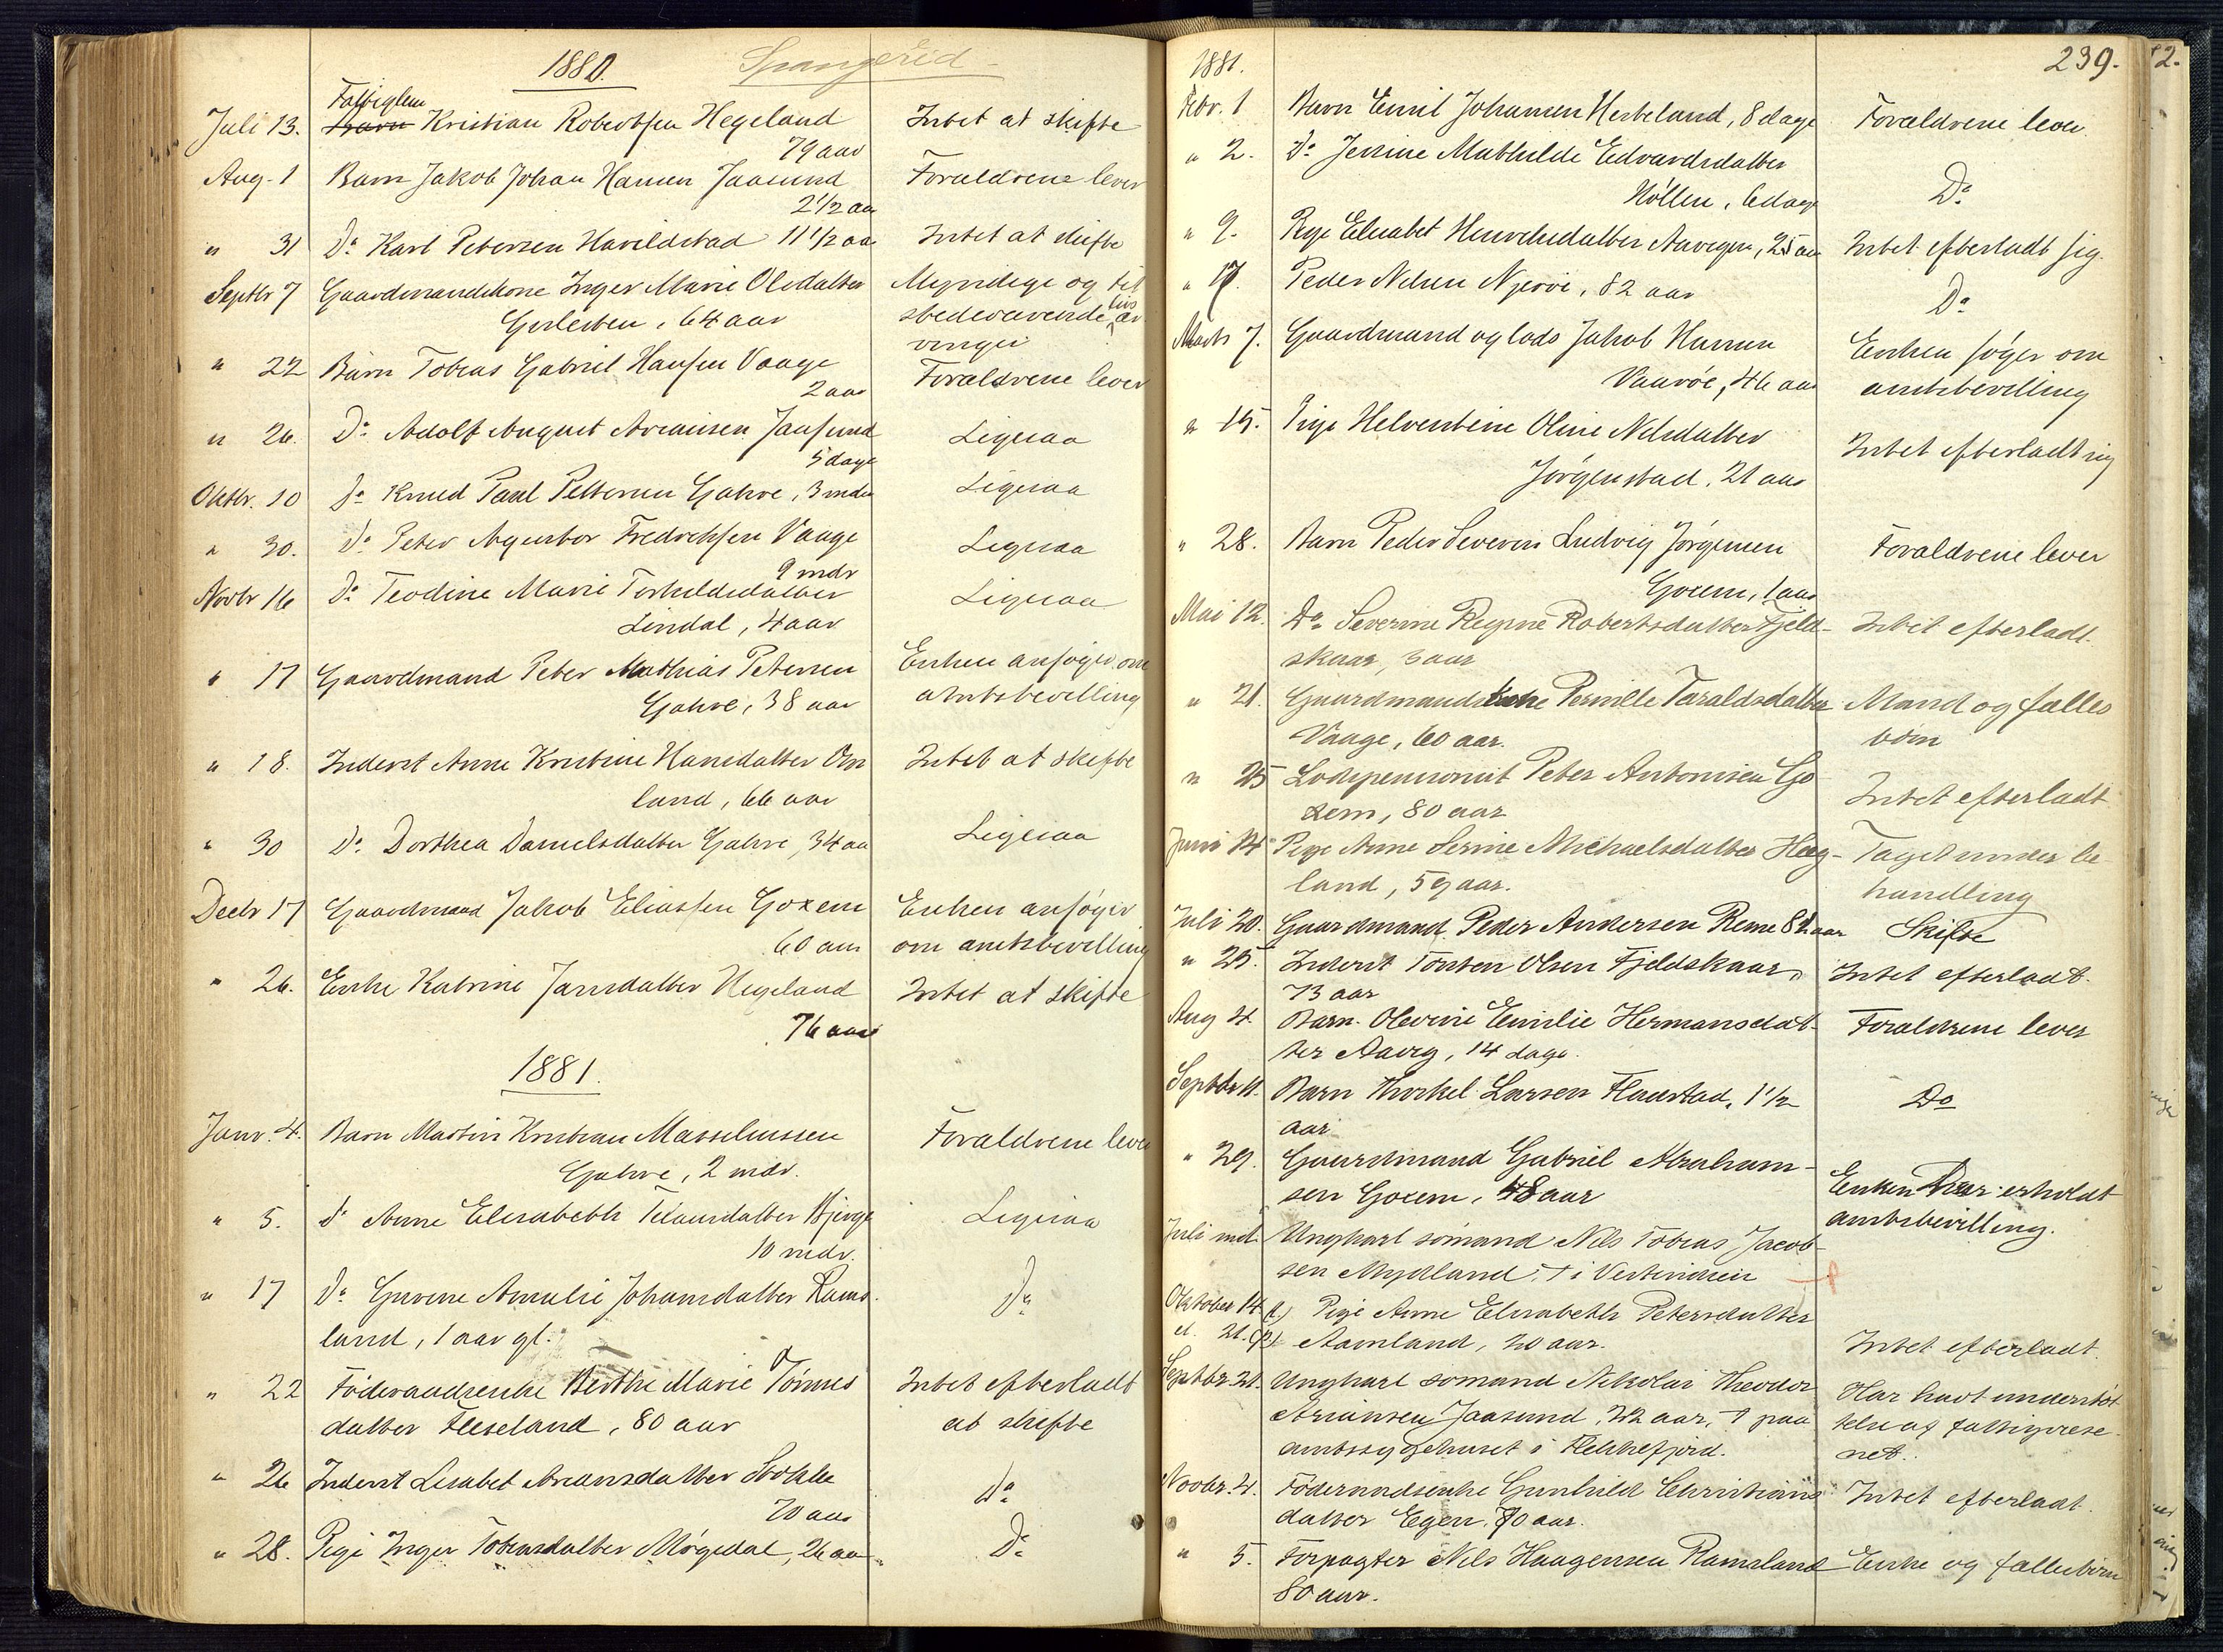 1880. Spangereid
Fattiglem
Juli 13. Barn Kristian Robertsen Hegeland Intet at skifte
79 aar
Aug. 1 Barn Jakob Johan Hansen Jaasund Forældrene lever
2 1/2 aar
" 31 Do Karl Petersen Havildstad 11 1/2 aar Intet at skifte
Septbr 7 Gaardmandskone Inger Marie Olsdatter Myndige og til
Gisleben, 64 aar stedeværende livsar
vinger
" 22 Barn Tobias Gabriel Hansen Vaage Forældrene lever
2 aar
" 26. Do Adolf August Ariansen Jaasund Ligesaa
5 dage
Oktbr. 10 Do Knud Paul Pettersen Gahre, 3 mdr Ligesaa
" 30. Do Peter Agentor Fredriksen Vaage Ligesaa
9 mdr
Novbr 16 Do Teodine Marie Torkildsdatter Ligesaa
Lindal, 4 aar
" 17 Gaardmand Peter Mathias Petersen Enken ansøger om
Gahre, 38 aar amtsbevilling
" 18. Inderst Anne Kristine Hansdatter Om Intet at skifte
land, 66 aar
" 30 Do Dorthea Danielsdatter Gahre, 34 aar Ligesaa
Decbr 17 Gaardmand Jakob Eliassen Goxem Enken ansøger
60 aar om amtsbevilling
" 26. Enke Katrine Jansdatter Hegeland Intet at skifte
76 aar
1881.
Janr. 4. Barn Martin Kristian Masseliussen Forældrene lever
Gahre, 2 mdr.
" 5. do Anne Elisabeth Telausdatter Bjerge Ligesaa
10 mdr.
" 17 Do Gurene Amalie Johansdatter Rams Do
land, 1 aar gl.
" 22 Føderaadsenke Berthe Marie Tønnes Intet efterladt
datter Fleseland, 80 aar at skifte
" 26 Inderst Lisabet Ariansdatter Stokke Do
70 aar
" 28. Pige Inger Tobiasdatter Møgedal, 26 aar Do
1881. 239.
Febr. 1 Barn Emil Johansen Herbeland, 8 dage Forældrene lever
" 2. Do Jensine Mathilde Edvardsdatter
Høllen, 6 dage Do
" 9. Pige Elisabet Henriksdatter Aavigen, 25 aar Intet efterladt sig.
" 17. Peder Nelsen Njerve, 82 aar Do
Marts 7. Gaardmand og lods Jakob Hansen Enken søger om
Vaarøe, 46 aar amtsbevilling
" 15. Pige Helventine Oline Nilsdatter Intet efterladt sig
Jørgenstad, 21 aar
" 28. Barn Peder Severin Ludvig Jørgensen Forældrene lever
Goxem, 1 aar
Mai 12. Do Severine Regine Robertsdatter Fjeld- Intet efterladt.
skaar, 3 aar
" 21. Gaardmandskone Pernille Taraldsdatter Mand og fælles
Vaage, 60 aar. børn
" 25 Lodspensionist Peter Antonisen Go
xem, 80 aar Intet efterladt
Juni 14 Pige Anne Serine Michaelsdatter Heg- Taget under be
land, 59 aar. handling
Juli 20. Gaardmand Peder Andersen Reme 82 aar Skifte
" 25. Inderst Tønten Olsen Fjeldskaar, Intet efterladt.
73 aar
Aug 4. Barn Olevine Emilie Hermansdat- Forældrene lever
ter Aavig, 14 dage.
Septbr 11. Barn Thorkel Larsen Flaastad, 1 1/2 Do
aar
" 29. Gaardmand Gabriel Abraham-
sen Goxem, 48 aar Enken har erholdt
amtsbevilling.
Juli md. Ungkarl sømand Nils Tobias Jacob-
sen Mydland, † i Vestindien
Oktober 14 (d.) Pige Anne Elisabeth Petersdatter
d. 21. Aamland, 20 aar. Intet efterladt.
Septbr. 21. Ungkarl sømand Nikolai Theodor Har havt understøt
Ariansen Jaasund, 22 aar, † paa telse af fattigvæse-
amtssygehuset i Flekkefjord. net.
Novbr. 4. Føderaadsenke Gunhild Christians Intet efterladt.
datter Egen, 70 aar.
" 5. Forpagter Nils Haagensen Ramsland Enke og fællesbørn
80 aar.